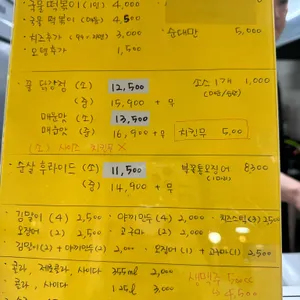 국물떡볶이 (1인) 4,000
국물 떡볶이 (매콤) 4,500
치즈추가 3,000 순대만 5,000
오뎅추가 1,500
꿀 닭강정 (소) 12,500 소스 1개 1,000
(중) 15,900 + 무
매콤맛 (소) 13,500
매콤맛 (중) 16,900 + 무 치킨무 500
(소) 사이즈 치킨무 X
순살 후라이드 (소) 11,500 8300
(중) 14,900 + 무
김말이 (4) 2,500 야끼만두 (4) 2,000 치즈스틱(3) 2,500
오징어 (2) 2,000 고구마 (2) 2,000
김말이(2) + 야끼만두(2) 2,000 오징어 (1) + 고구마 (1) 2,500
콜라, 제로콜라, 사이다 355ml 2,000 생맥주
콜라, 사이다 1.25l 3,000 4,500